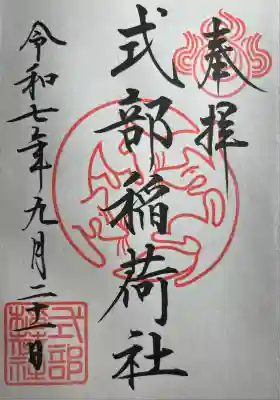 奉拝
式部稲荷社
令和七年九月二十一日
式部